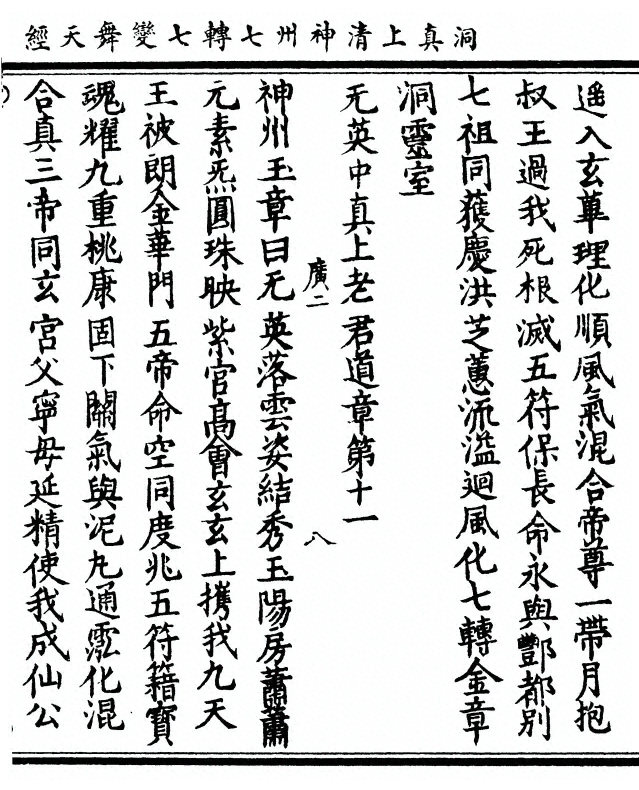 洞真上清神州七轉七變舞天經
遥入玄華理化順風氣混合帝尊一帶月抱
叔王過我死根滅五符保長命永與酆都別
七祖同獲慶洪芝蕙流溢迴風化七轉金章
洞靈室
无英中真上老君道章第十一
廣二 八
神州玉章曰无英落雲姿結秀玉陽房蕭蕭
元素炁圓珠映紫官高會玄玄上攜我九天
王被朗金華門五帝命空同度兆五符籍寶
魂耀九重桃康固下關氣與泥丸通雲化混
合真三帝同玄宮父寧母延精使我成仙公